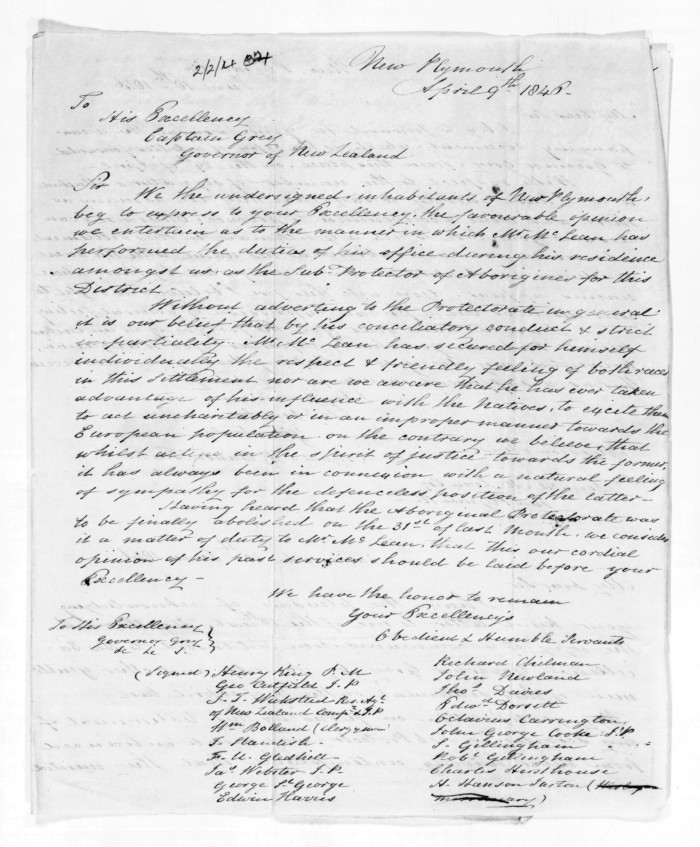 2/2/4
New Plymouth
April 9th 1846.
To
His Excellency
Captain Grey
Governor of New Zealand
Sir We the undersigned inhabitants of New Plymouth,
beg to express to your Excellency, the favourable opinion
we entertain as to the manner in which Mr. McLean has
performed the duties of his office during his residence
amongst us, as the Sub. Protector of Aborigines for this
District.
Without adverting to the Protectorate in general
it is our belief that by his conciliatory conduct & strict
impartiality Mr. McLean has secured for himself
individually the respect & friendly feeling of both races
in this Settlement nor are we aware that he has ever taken
advantage of his influence with the Natives, to excite them
to act uncharitably or in an improper manner towards the
European population on the contrary we believe, that
whilst acting in the spirit of justice towards the former,
it has always been in connexion with a natural feeling
of sympathy for the defenceless position of the latter—
Having heard that the Aboriginal Protectorate was
to be finally abolished on the 31st of last Month, we consider
it a matter of duty to Mr. McLean, that this our cordial
opinion of his past services should be laid before your
Excellency—
We have the honor to remain
Your Excellency's
Obedient & Humble Servants
To His Excellency
Governor Grey
&c &c &c
(Signed) Henry King P.M
Geo Cutfield J.P
J. T. Wicksteed Res. Agt.
of New Zealand Compy & J.P
Wm Bolland (Clergyman)
T. Standish
F. U. Gledhill
Jas. Webster J.P.
George St. George
Edwin Harris
Richard Chilman
John Newland
Thos. Davies
Edwd. Dorsett
Octavius Carrington
John George Cooke J.P
J. Gillingham
Robt. Gillingham
Charles Hursthouse
H. Hanson Turton (Wesleyn
Missionary)